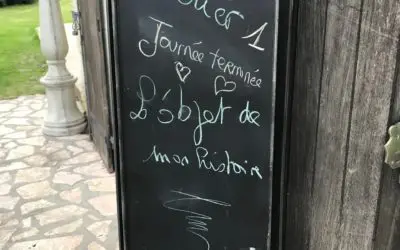 1
Journée terminée
L'objet de
mon histoire